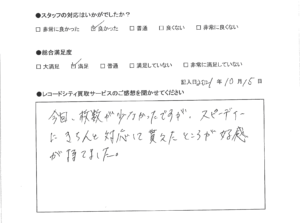 ●スタッフの対応はいかがでしたか?
□非常に良かった ☑良かった □普通 □良くない □非常に良くない
●総合満足度
□大満足 ☑満足 □普通 □満足していない □非常に満足していない
記入日 2024年 10月 15日
●レコードシティ買取サービスのご感想を聞かせてください
今回、枚数が少なかったですが、スピーディー
にきちんと対応して貰えたところが好感
が持てました。